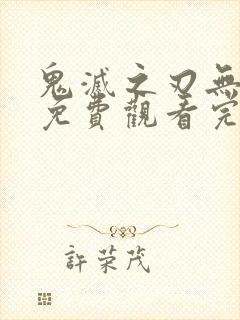 鬼滅之刃無
免費觀看完
許荣茂